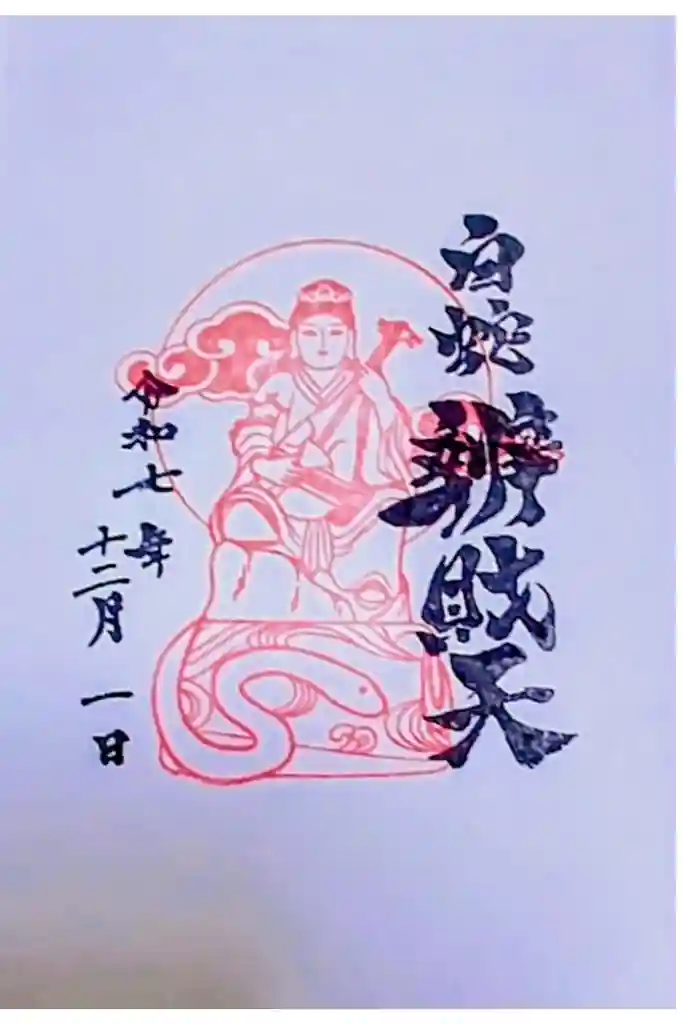 白蛇辨財天
令和七年
十二月一日